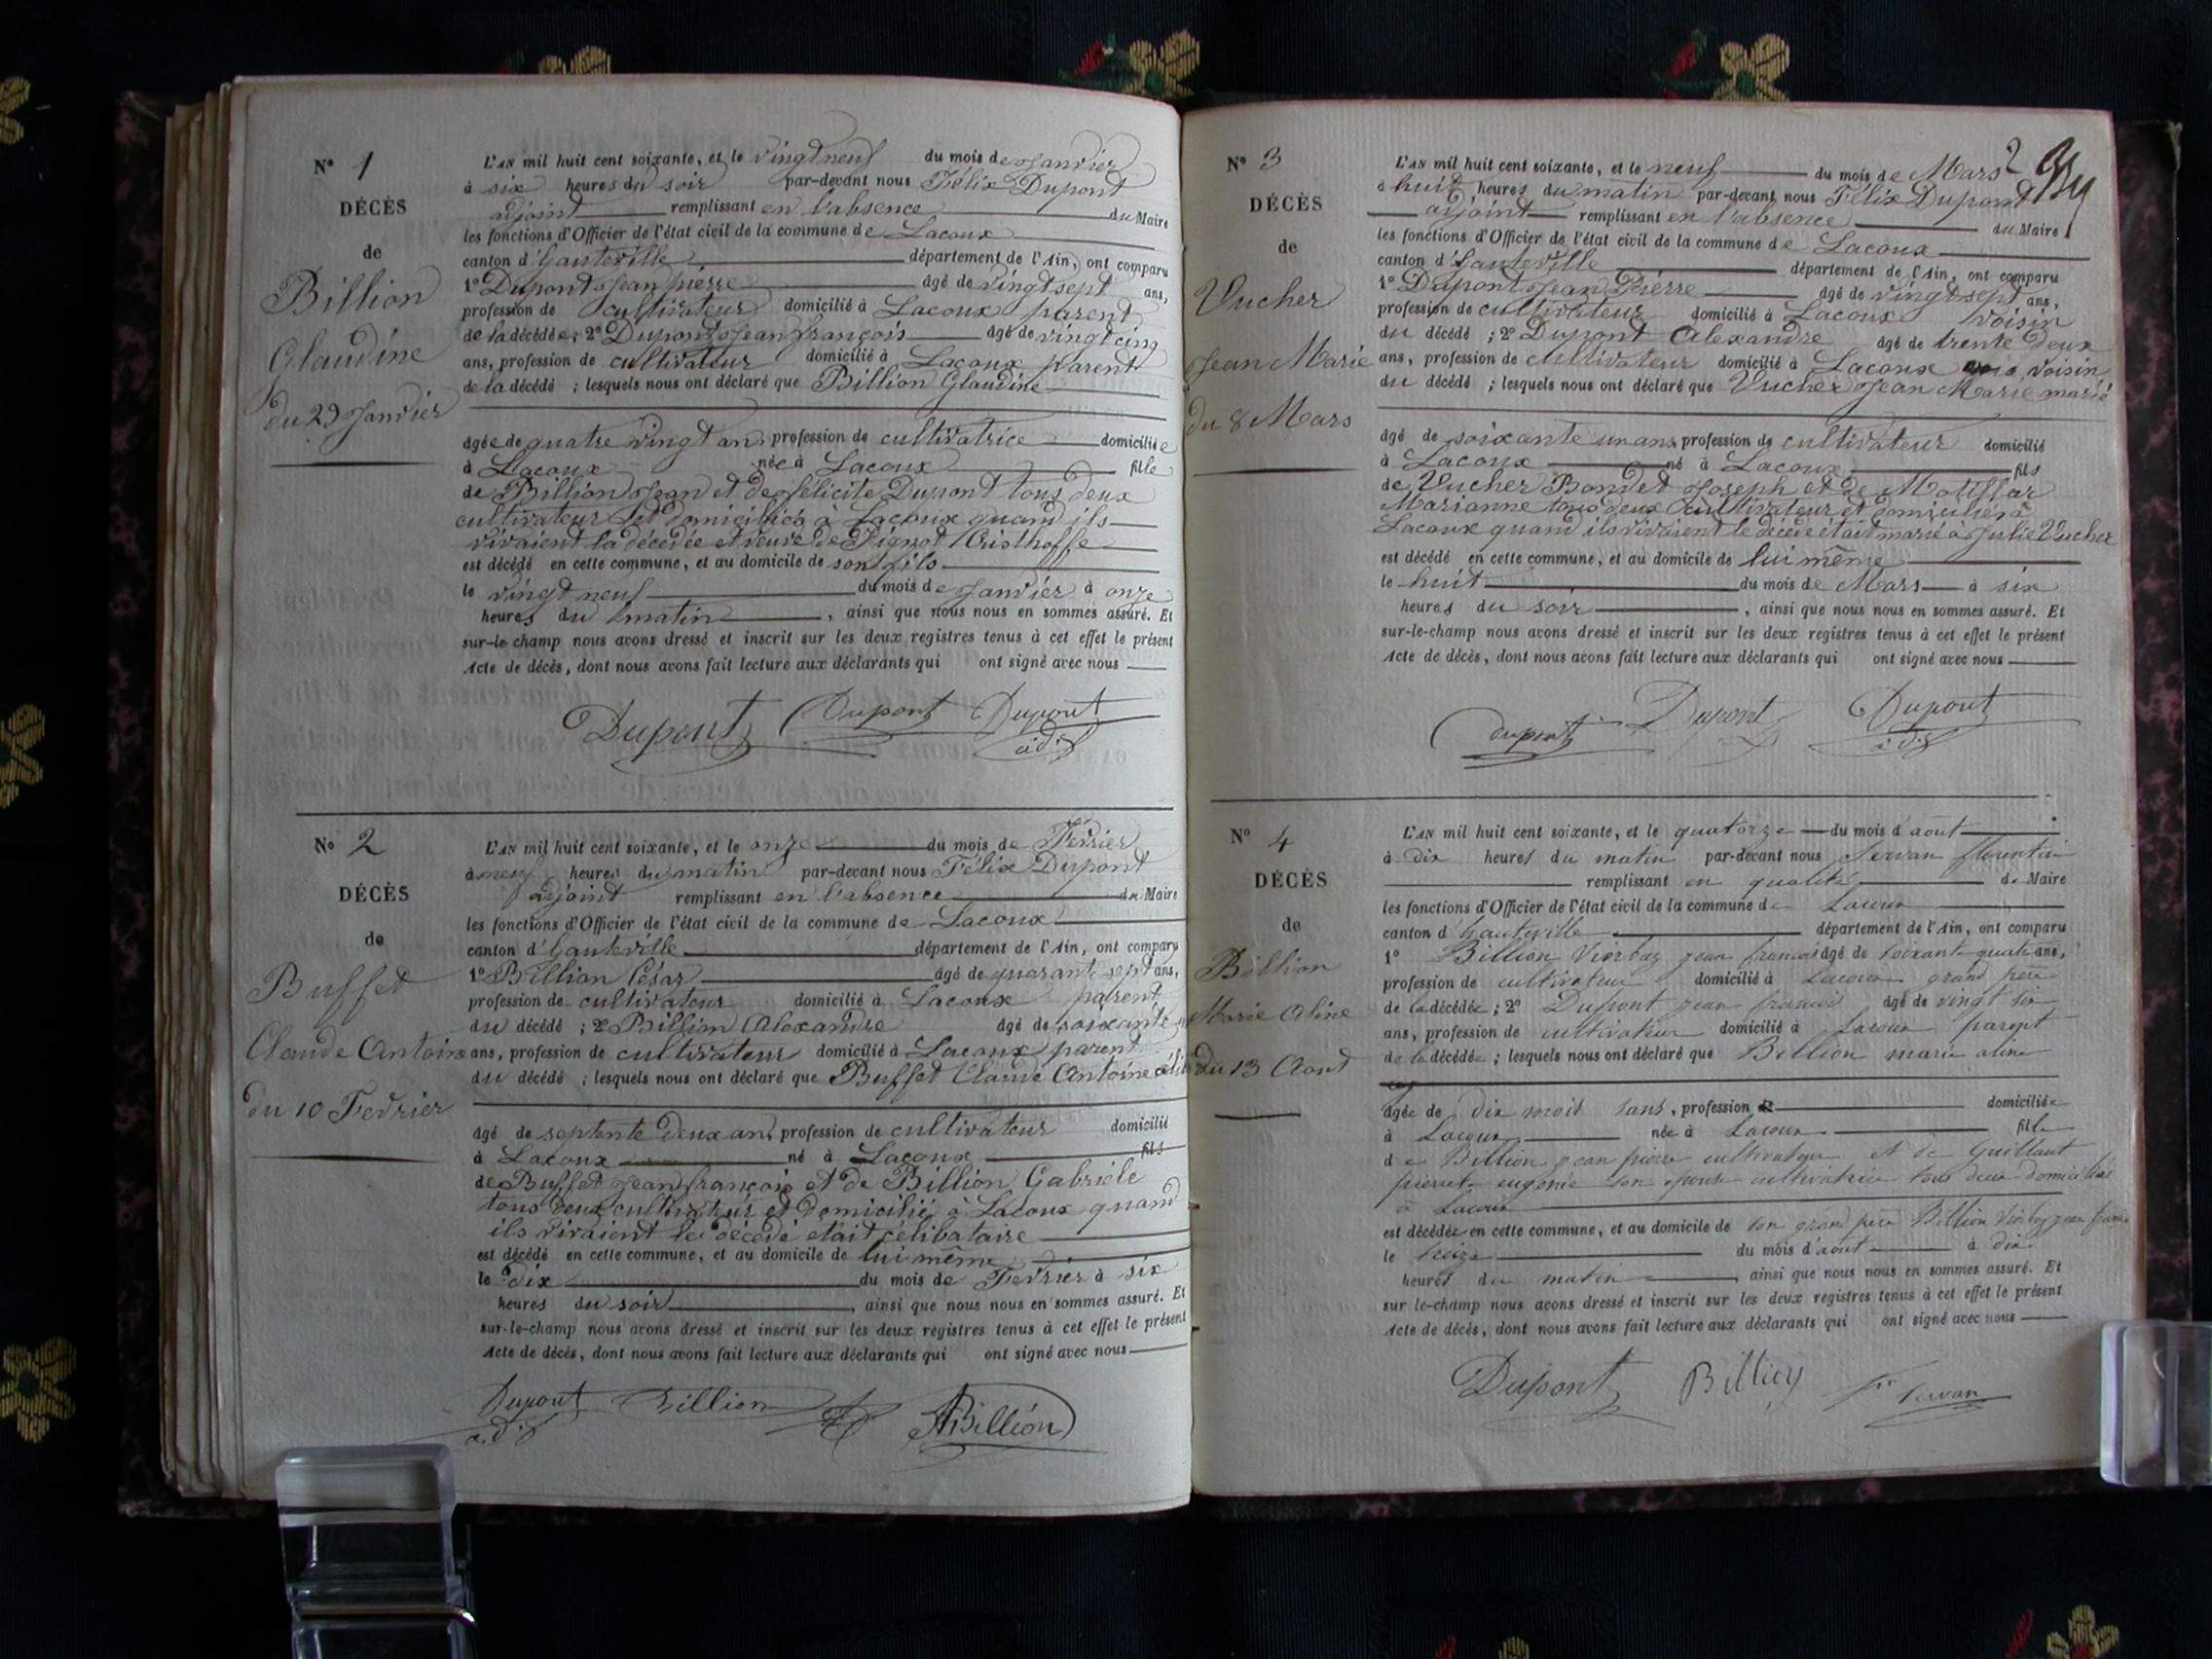 N° 1
DÉCÈS
de
Billion
Glaudine
du 29 Janvier
L'AN mil huit cent soixante, et le vingt neuf du mois de Janvier
à six heures du soir par-devant nous Félix Dupont
adjoint remplissant en l'absence du Maire
les fonctions d'Officier de l'état civil de la commune de Lacoux
canton d'Hauteville département de l'Ain, ont comparu
1° Dupont Jean pierre âgé de vingt sept ans,
profession de cultivateur domicilié à Lacoux parent
de la décédée; 2° Dupont Jean françois âgé de vingt cinq
ans, profession de cultivateur domicilié à Lacoux parent
de la décédé ; lesquels nous ont déclaré que Billion Glaudine
âgée de quatre vingt ans profession de cultivatrice domiciliée
à Lacoux née à Lacoux fille
de Billion Jean et de Félicité Dupont tous deux
cultivateur et domiciliés à Lacoux quand ils
vivaient la décédée et veuve de
est décédé en cette commune, et au domicile de son fils
le vingt neuf du mois de Janvier à onze
heures du matin, ainsi que nous nous en sommes assuré. Et
sur-le-champ nous avons dressé et inscrit sur les deux registres tenus à cet effet le présent
Acte de décès, dont nous avons fait lecture aux déclarants qui ont signé avec nous
Dupont Dupont Dupont
adj
N° 2
DÉCÈS
de
Buffet
Claude Antoine
du 10 Fevrier
L'AN mil huit cent soixante, et le onze du mois de Fevrier
à neuf heures du matin par-devant nous Félix Dupont
adjoint remplissant en l'absence du Maire
les fonctions d'Officier de l'état civil de la commune de Lacoux
canton d'Hauteville département de l'Ain, ont comparu
1° Billion César âgé de quarante sept ans,
profession de cultivateur domicilié à Lacoux parent
du décédé ; 2° Billion Alexandre âgé de soixante
ans, profession de cultivateur domicilié à Lacoux parent
du décédé ; lesquels nous ont déclaré que Buffet Claude Antoine
âgé de septente deux ans profession de cultivateur domicilié
à Lacoux né à Lacoux fils
de Buffet Jean françois et de Billion Gabriele
tous deux cultivateur et domicilié à Lacoux quand
ils vivaient le décédé était célibataire
est décédé en cette commune, et au domicile de lui même
le dix du mois de Fevrier à six
heures du soir, ainsi que nous nous en sommes assuré. Et
sur-le-champ nous avons dressé et inscrit sur les deux registres tenus à cet effet le présent
Acte de décès, dont nous avons fait lecture aux déclarants qui ont signé avec nous
Dupont Billion ABillion
adj
2
N° 3
DÉCÈS
de
Vucher
Jean Marie
du 8 Mars
L'AN mil huit cent soixante, et le neuf du mois de Mars
à huit heures du matin par-devant nous Félix Dupont
adjoint remplissant en l'absence du Maire
les fonctions d'Officier de l'état civil de la commune de Lacoux
canton d'Hauteville département de l'Ain, ont comparu
1° Dupont Jean Pierre âgé de vingt sept ans,
profession de cultivateur domicilié à Lacoux voisin
du décédé ; 2° Dupont Alexandre âgé de trente deux
ans, profession de cultivateur domicilié à Lacoux voisin
du décédé ; lesquels nous ont déclaré que Vucher Jean Marie marié
âgé de soixante un ans profession de cultivateur domicilié
à Lacoux né à Lacoux fils
de Vucher Joseph et de
Marianne tous deux cultivateur et domiciliés à
Lacoux quand ils vivaient le décédé était marié à Julie Vucher
est décédé en cette commune, et au domicile de lui même
le huit du mois de Mars à six
heures du soir, ainsi que nous nous en sommes assuré. Et
sur-le-champ nous avons dressé et inscrit sur les deux registres tenus à cet effet le présent
Acte de décès, dont nous avons fait lecture aux déclarants qui ont signé avec nous
Dupont Dupont Dupont
adj
N° 4
DÉCÈS
de
Billion
Marie Aline
du 13 Aout
L'AN mil huit cent soixante, et le quatorze du mois d'aout
à dix heures du matin par-devant nous Servan florentin
remplissant en qualité de Maire
les fonctions d'Officier de l'état civil de la commune de Lacoux
canton d'hauteville département de l'Ain, ont comparu
1° Billion jean francois âgé de soixante quatre ans,
profession de cultivateur domicilié à Lacoux grand père
de la décédée ; 2° Dupont jean francois âgé de vingt six
ans, profession de cultivateur domicilié à Lacoux parent
de la décédée ; lesquels nous ont déclaré que Billion marie aline
âgée de dix mois sans, profession domiciliée
à Lacoux née à Lacoux fille
de Billion jean pierre cultivateur et de Guillaut
pierrete eugenie son epouse cultivatrice tous deux domiciliés
à Lacoux
est décédée en cette commune, et au domicile de son grand père Billion
le treize du mois d'aout à dix
heures du matin, ainsi que nous nous en sommes assuré. Et
sur le-champ nous avons dressé et inscrit sur les deux registres tenus à cet effet le présent
Acte de décès, dont nous avons fait lecture aux déclarants qui ont signé avec nous
Dupont Billion Servan